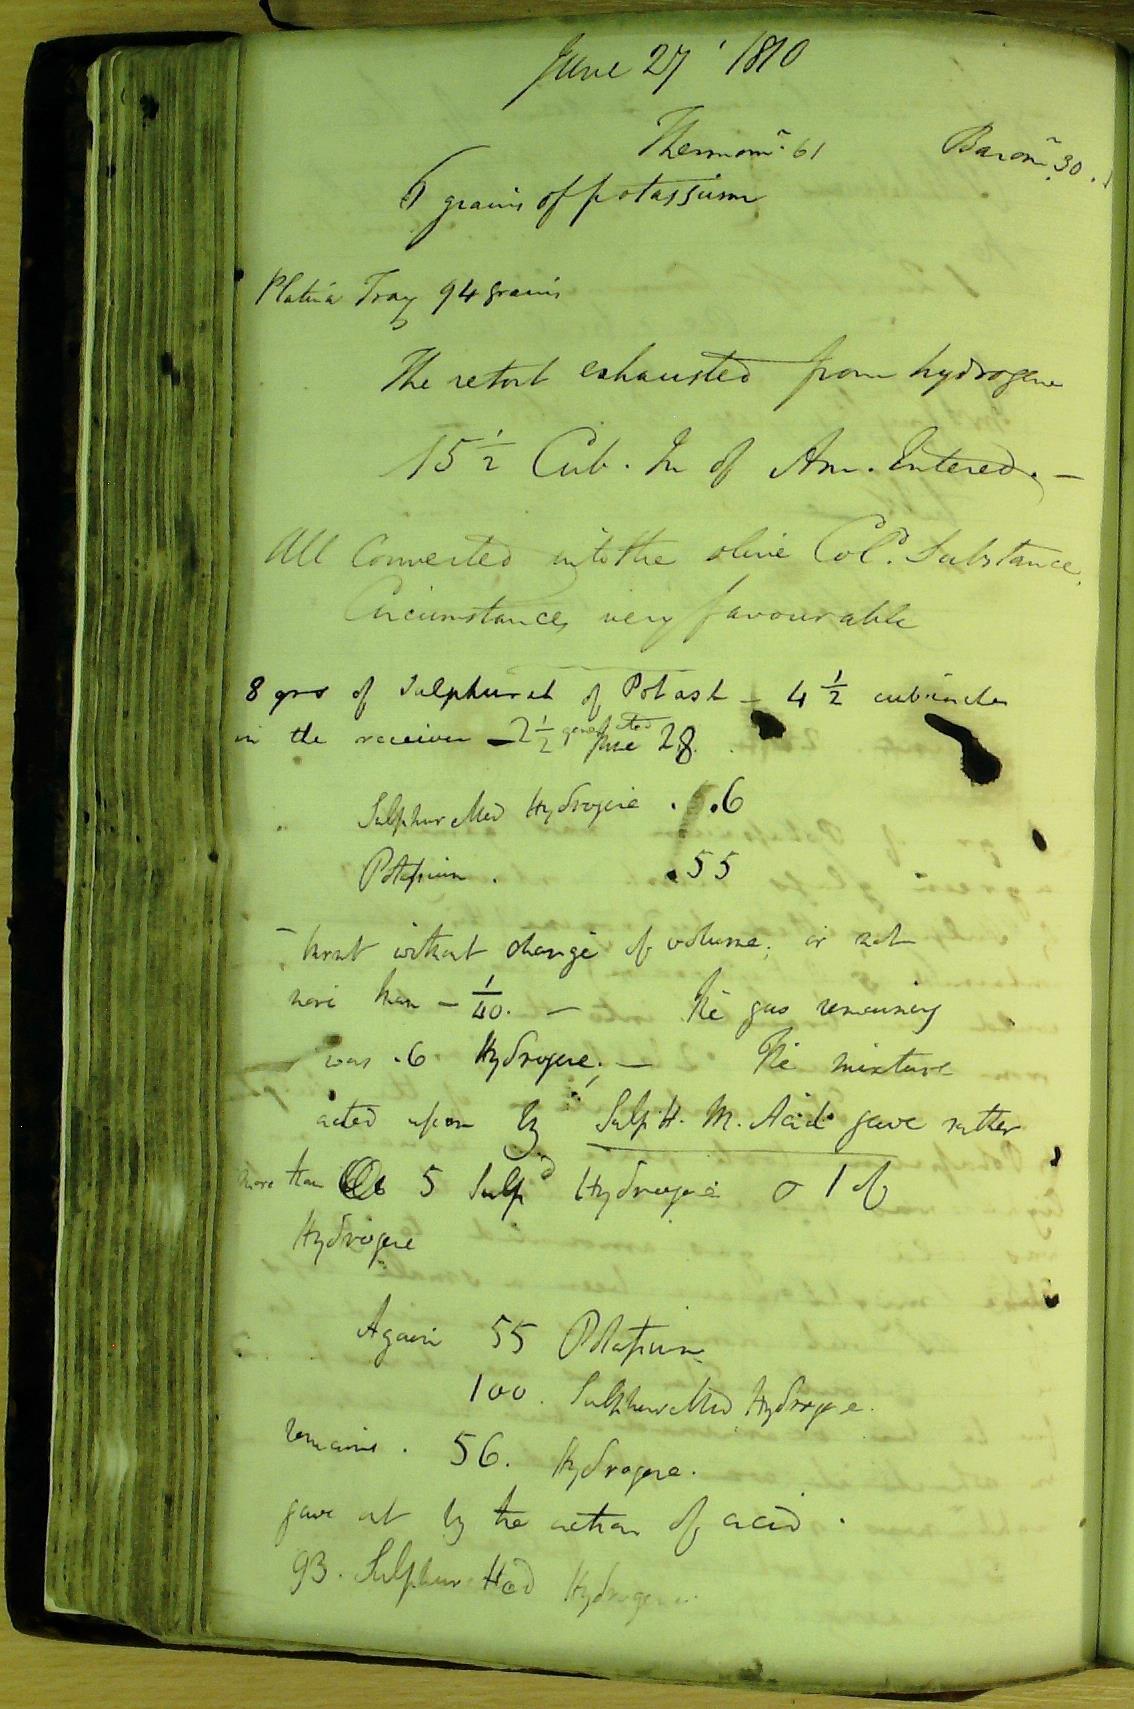 June 27 1810
Thermomr. 61 Baromr. 30.1
6 grains of potassium
Platina Tray 94 grains
The retort exhausted from hydrogene
15 1/2 Cub. In of Am. Entered. —
All Converted into the olive Cold. Substance.
Circumstances very favourable
8 grs of Sulphuret of Potash — 4 1/2 cubinches
in the receiver — 2 1/2 generated June 28.
Sulphuretted Hydrogene . .6
Potassium . .55
— burnt without change of volume; or not
more than — 1/40. — The gas remaining
was .6 Hydrogene. — The mixture
acted upon by Sulp H. M. Acid gave rather
more than 5 Sulpd Hydrogene 0 1 of
Hydrogene
Again 55 Potassium
100. Sulphuretted Hydrogene.
remains . 56. Hydrogene.
gave out by the action of acid .
93. Sulphuretted Hydrogene.